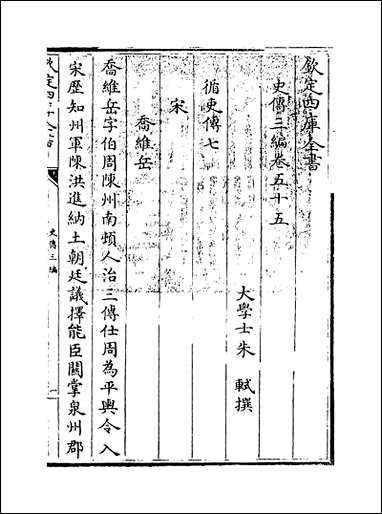 欽定四庫全書
史傳三編卷五十五
大學士朱軾撰
循吏傳七
宋
喬維岳
喬維岳字伯周陳州南頓人治三傳仕周為平輿令入
宋歷知州軍陳洪進納土朝廷議擇能臣關掌泉州郡
史傳三編
一